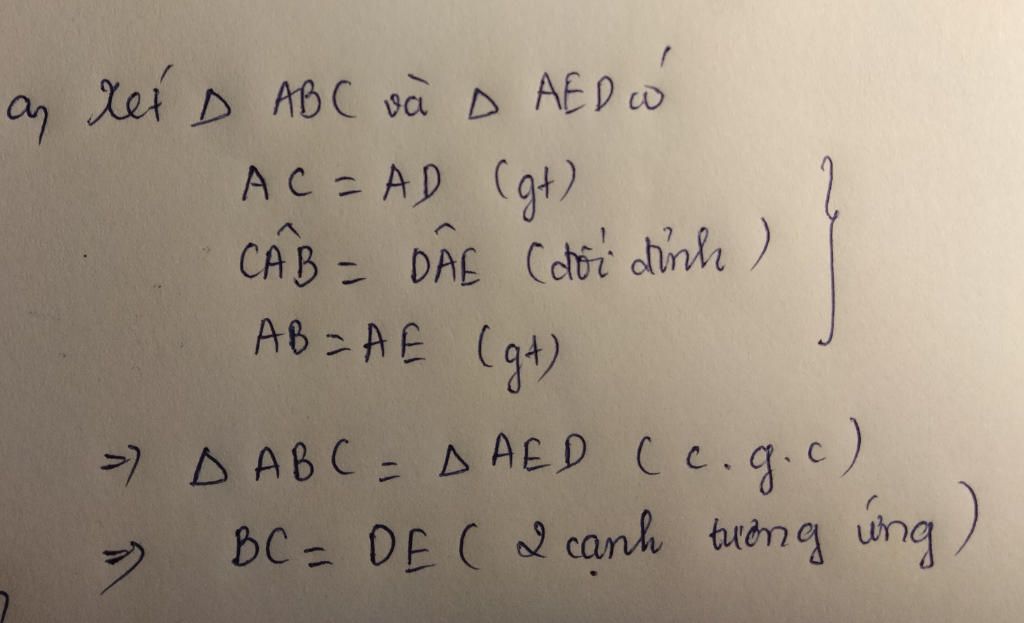 a) Xét Δ ABC và Δ AED có
AC = AD (gt)
CÂB = DÂE (đối đỉnh) }
AB = AE (gt)
=> Δ ABC = Δ AED (c.g.c)
=> BC = DE (2 cạnh tương ứng)